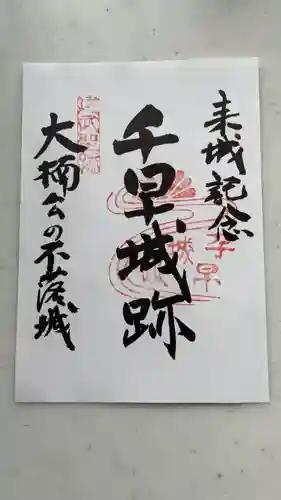 来城記念
千早城跡
千早城
建武聖跡
大楠公の不落城